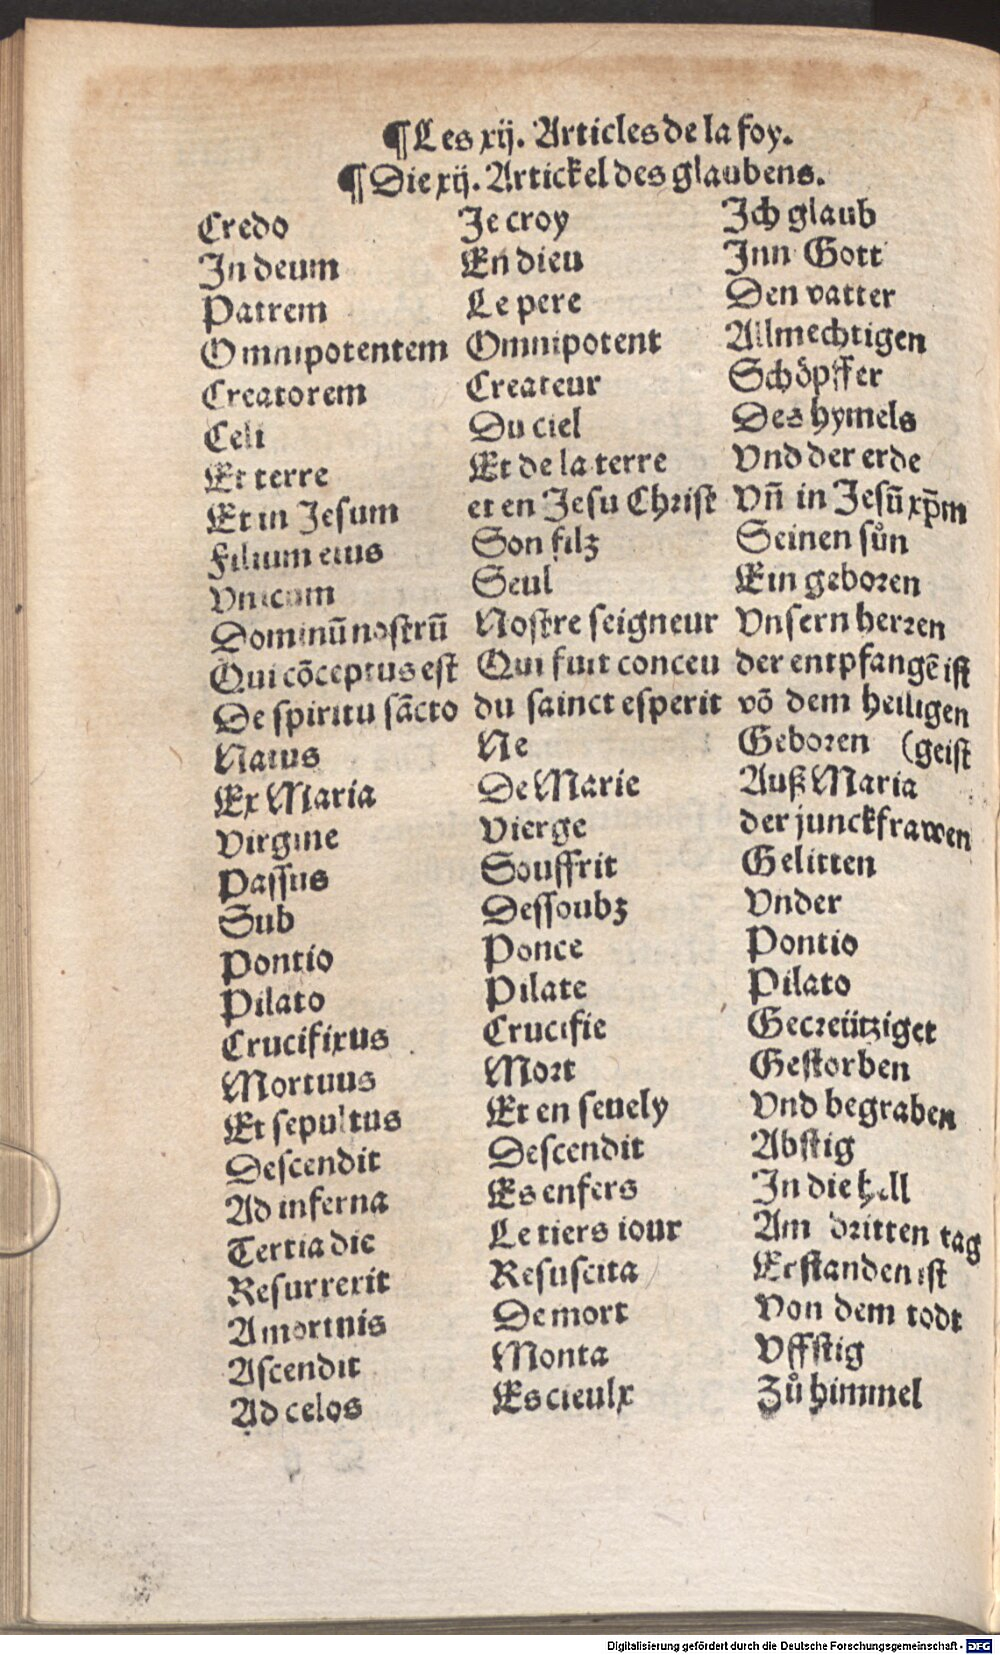 ¶Les xij. Articles de la foy.
¶Die xij. Artickel des glaubens.
Credo Je croy Ich glaub
In deum En dieu Inn Gott
Patrem Le pere Den vatter
Omnipotentem Omnipotent Allmechtigen
Creatorem Createur Schöpffer
Celi Du ciel Des hymels
Et terre Et de la terre Vnd der erde
Et in Jesum et en Jesu Christ Vn̄ in Jesū xp̄m
Filium eius Son filz Seinen sůn
Vnicum Seul Ein geboren
Dominū nostrū Nostre seigneur Vnsern herren
Qui cōceptus est Qui fuit conceu der entpfangē ist
De spiritu sācto du sainct esperit vō dem heiligen
Natus Ne Geboren (geist
Ex Maria De Marie Auß Maria
Virgine Vierge der junckfrawen
Passus Souffrit Gelitten
Sub Dessoubz Vnder
Pontio Ponce Pontio
Pilato Pilate Pilato
Crucifixus Crucifie Gecreütziget
Mortuus Mort Gestorben
Et sepultus Et en seuely Vnd begraben
Descendit Descendit Abstig
Ad inferna Es enfers In die hell
Tertia die Le tiers iour Am dritten tag
Resurrexit Resuscita Erstanden ist
A mortuis De mort Von dem todt
Ascendit Monta Vffstig
Ad celos Es cieulx Zů himmel
Digitalisierung gefördert durch die Deutsche Forschungsgemeinschaft - DFG